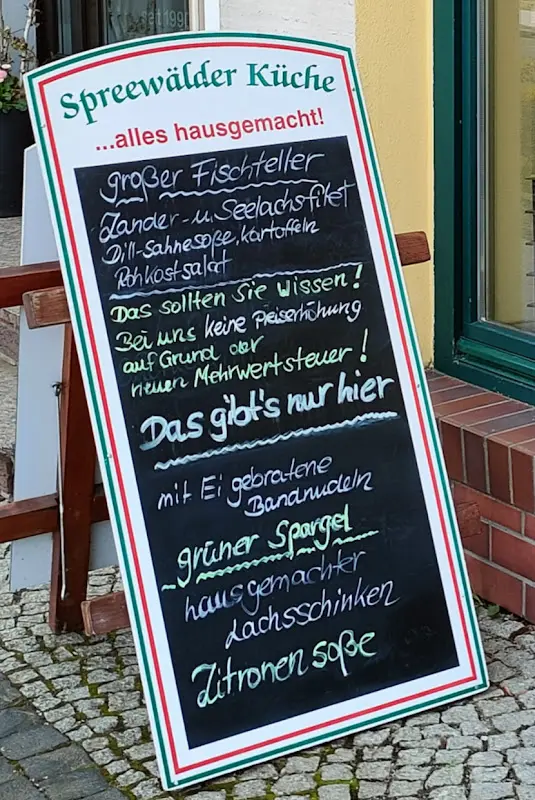 seit 1990
Spreewälder Küche
...alles hausgemacht!
großer Fischteller
Zander- u. Seelachsfilet
Dill-Sahnesoße, Kartoffeln
Rohkostsalat
Das sollten Sie wissen!
Bei uns keine Preiserhöhung
auf Grund der
neuen Mehrwertsteuer!
Das gibt's nur hier
mit Ei gebratene
Bandnudeln
grüner Spargel
hausgemachter
Lachsschinken
Zitronensoße